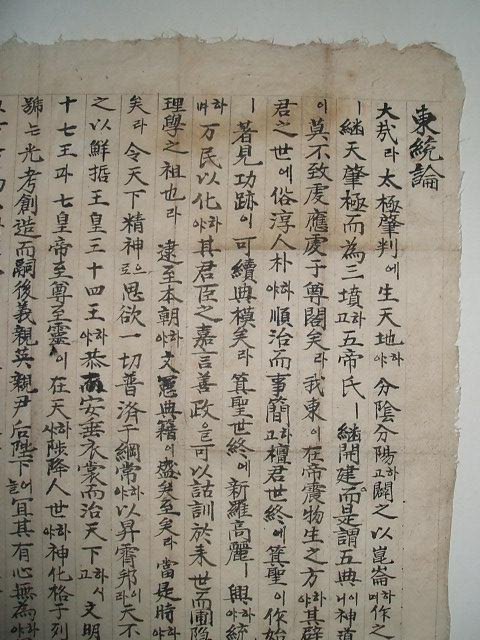 東統論
大哉라 太極肇判에 生天地야하 分陰分陽고하 闢之以崑崙며하 作之
ㅣ 繼天肇極而為三墳고라 五帝氏ㅣ 繼開建而是謂五典니어 神道
이 莫不致虔應虔于尊閣矣라 我東이 在帝震物生之方야하 其辟
君之世에 俗淳人朴야하 順治而事簡고하 檀君世終에 箕聖이 作
ㅣ 著見功跡이 可續典模矣라 箕聖世終에 新羅高麗ㅣ 興야하 統
며하 万民以化야하 其君臣之嘉言善政은 可以詁訓於来世而圃隐
理學之祖也라 逮至本朝야하 文憲典籍이 盛矣至矣라 當是時야하
矣라 令天下精神로으 思欲一切普濟于綱常야하 以昇齊邦이라 天不
之以鮮哲王皇三十四王야하 恭而安垂衣裳而治天下고하시 文明
十七王과 七皇帝至尊至靈이 在天야하사 陟降人世야하 神化格子列
號는 光考創造而嗣後義親英親尹后陛下늘어 宜其有心無為야하